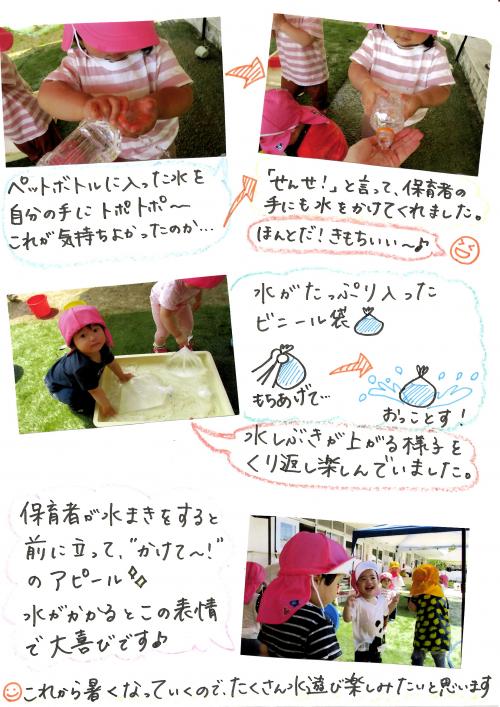 ペットボトルに入った水を
自分の手にトポトポ～
これが気持ちよかったのか…
「せんせ！」と言って、保育者の
手にも水をかけてくれました。
ほんとだ！きもちいい～♪
水がたっぷり入った
ビニール袋
もちあげて…
おっことす！
水しぶきが上がる様子を
くり返し楽しんでいました。
保育者が水まきをすると
前に立って、“かけて～！”
のアピール
水がかかるとこの表情
で大喜びです♪
これから暑くなっていくので、たくさん水遊び楽しみたいと思います